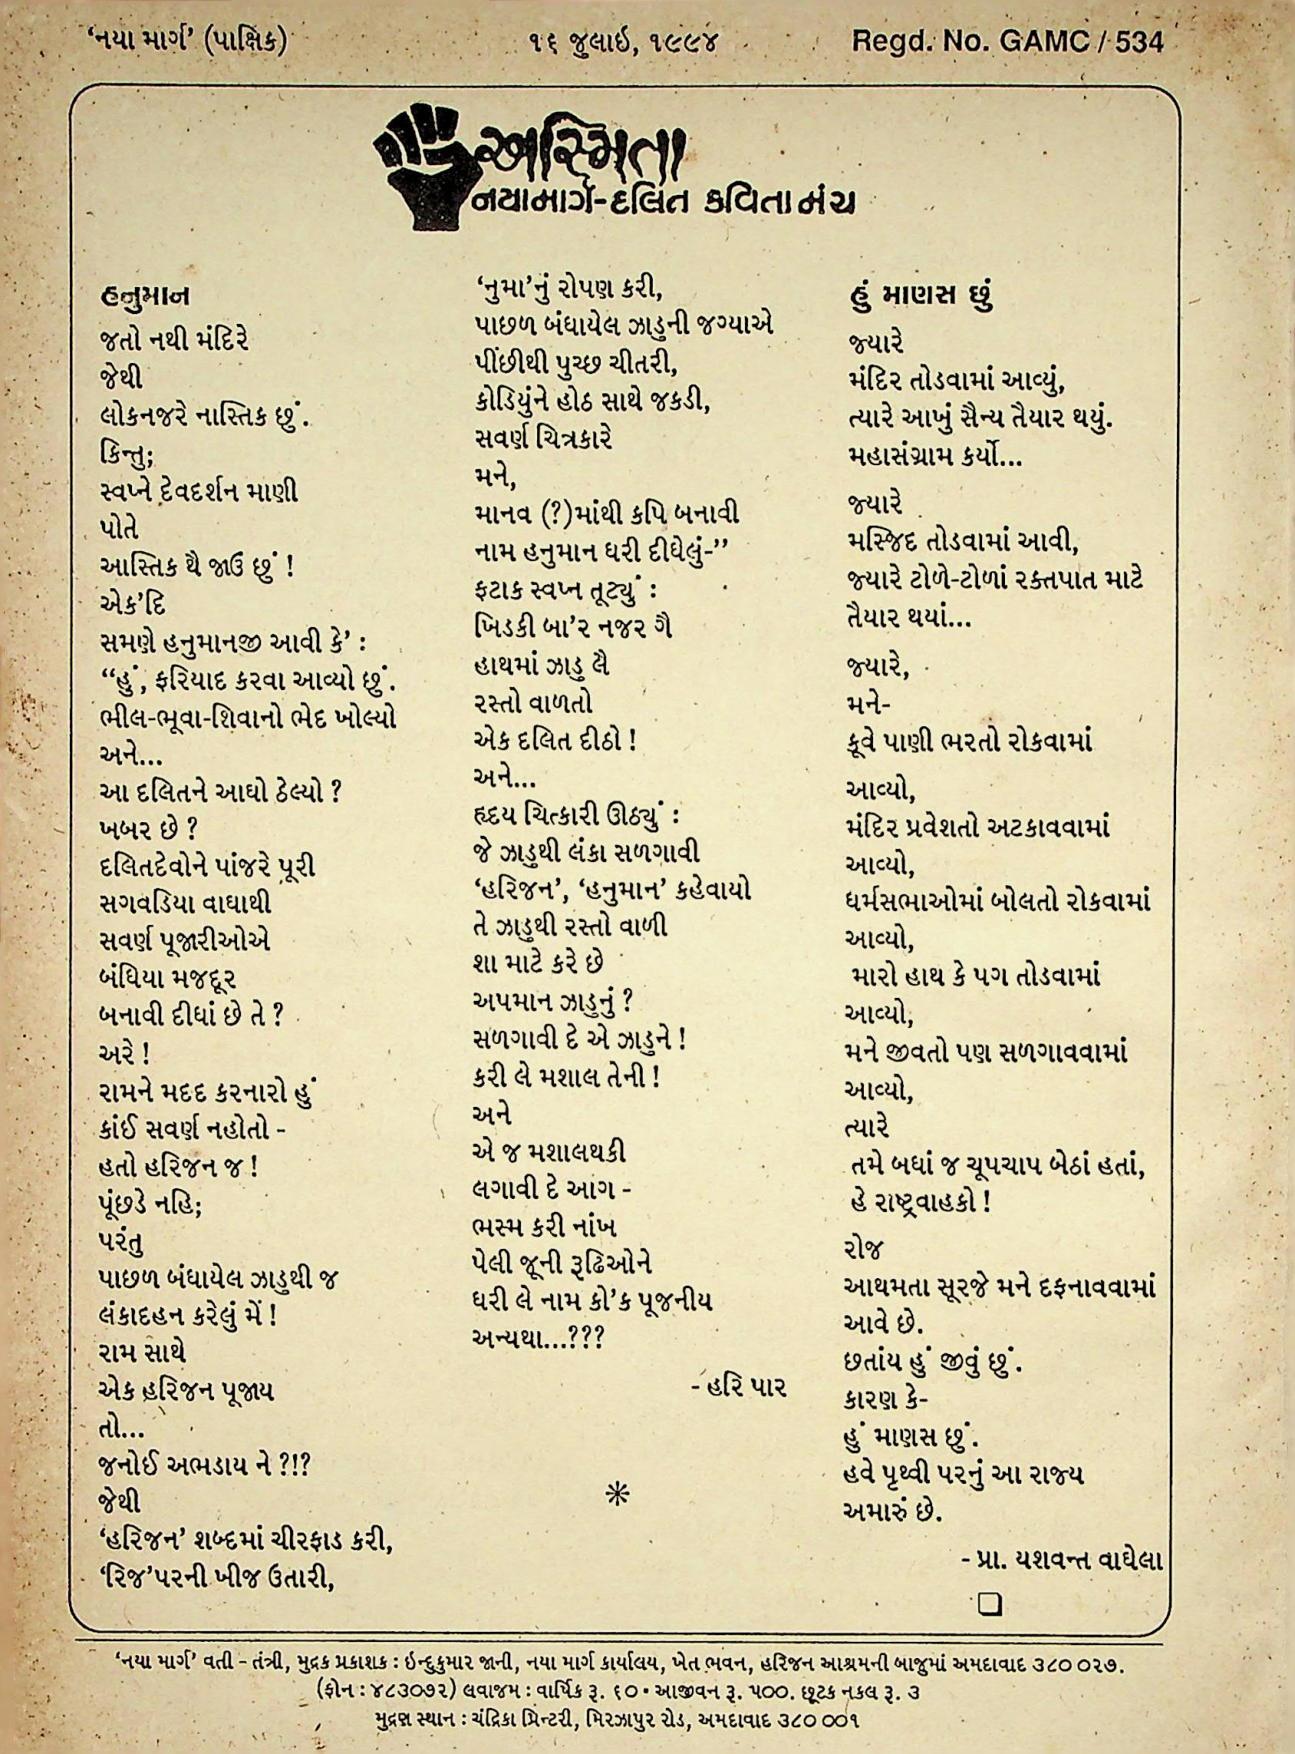 ‘નયા માર્ગ’ (પાક્ષિક)
૧૬ જુલાઇ, ૧૯૯૪
Regd. No. GAMC / 534
અસ્મિતા
નયામાર્ગ-દલિત કવિતા મંચ
હનુમાન
જતો નથી મંદિરે
જેથી
લોકનજરે નાસ્તિક છું.
કિન્તુ;
સ્વપ્ને દેવદર્શન માણી
પોતે
આસ્તિક થૈ જાઉ છું !
એક’દિ
સમણે હનુમાનજી આવી કે’ :
“હું, ફરિયાદ કરવા આવ્યો છું.
ભીલ-ભૂવા-શિવાનો ભેદ ખોલ્યો
અને...
આ દલિતને આઘો ઠેલ્યો ?
ખબર છે ?
દલિતદેવોને પાંજરે પૂરી
સગવડિયા વાઘાથી
સવર્ણ પૂજારીઓએ
બંધિયા મજદૂર
બનાવી દીધાં છે તે ?
અરે !
રામને મદદ કરનારો હું
કાંઈ સવર્ણ નહોતો -
હતો હરિજન જ !
પૂંછડે નહિ;
પરંતુ
પાછળ બંધાયેલ ઝાડુથી જ
લંકાદહન કરેલું મેં !
રામ સાથે
એક હરિજન પૂજાય
તો...
જનોઈ અભડાય ને ?!?
જેથી
‘હરિજન’ શબ્દમાં ચીરફાડ કરી,
‘રિજ’પરની ખીજ ઉતારી,
‘નુમા’નું રોપણ કરી,
પાછળ બંધાયેલ ઝાડુની જગ્યાએ
પીંછીથી પુચ્છ ચીતરી,
કોડિયુંને હોઠ સાથે જકડી,
સવર્ણ ચિત્રકારે
મને,
માનવ (?)માંથી કપિ બનાવી
નામ હનુમાન ધરી દીધેલું-”
ફટાક સ્વપ્ન તૂટ્યું :
ખિડકી બા’ર નજર ગૈ
હાથમાં ઝાડુ લૈ
રસ્તો વાળતો
એક દલિત દીઠો !
અને...
હૃદય ચિત્કારી ઊઠ્યું :
જે ઝાડુથી લંકા સળગાવી
‘હરિજન’, ‘હનુમાન’ કહેવાયો
તે ઝાડુથી રસ્તો વાળી
શા માટે કરે છે
અપમાન ઝાડુનું ?
સળગાવી દે એ ઝાડુને !
કરી લે મશાલ તેની !
અને
એ જ મશાલથકી
લગાવી દે આગ -
ભસ્મ કરી નાંખ
પેલી જૂની રૂઢિઓને
ધરી લે નામ કો’ક પૂજનીય
અન્યથા...???
- હરિ પાર
હું માણસ છું
જ્યારે
મંદિર તોડવામાં આવ્યું,
ત્યારે આખું સૈન્ય તૈયાર થયું.
મહાસંગ્રામ કર્યો...
જ્યારે
મસ્જિદ તોડવામાં આવી,
જ્યારે ટોળે-ટોળાં રક્તપાત માટે
તૈયાર થયાં...
જ્યારે,
મને-
કૂવે પાણી ભરતો રોકવામાં
આવ્યો,
મંદિર પ્રવેશતો અટકાવવામાં
આવ્યો,
ધર્મસભાઓમાં બોલતો રોકવામાં
આવ્યો,
મારો હાથ કે પગ તોડવામાં
આવ્યો,
મને જીવતો પણ સળગાવવામાં
આવ્યો,
ત્યારે
તમે બધાં જ ચૂપચાપ બેઠાં હતાં,
હે રાષ્ટ્રવાહકો !
રોજ
આથમતા સૂરજે મને દફનાવવામાં
આવે છે.
છતાંય હું જીવું છું.
કારણ કે-
હું માણસ છું.
હવે પૃથ્વી પરનું આ રાજ્ય
અમારું છે.
- પ્રા. યશવન્ત વાઘેલા
‘નયા માર્ગ’ વતી - તંત્રી, મુદ્રક પ્રકાશક : ઇન્દુકુમાર જાની, નયા માર્ગ કાર્યાલય, ખેત ભવન, હરિજન આશ્રમની બાજુમાં અમદાવાદ ૩૮૦ ૦૨૭.
(ફોન : ૪૮૩૦૭૨) લવાજમ : વાર્ષિક રૂ. ૬૦ • આજીવન રૂ. ૫૦૦. છૂટક નકલ રૂ. ૩
મુદ્રણ સ્થાન : ચંદ્રિકા પ્રિન્ટરી, મિરઝાપુર રોડ, અમદાવાદ ૩૮૦ ૦૦૧